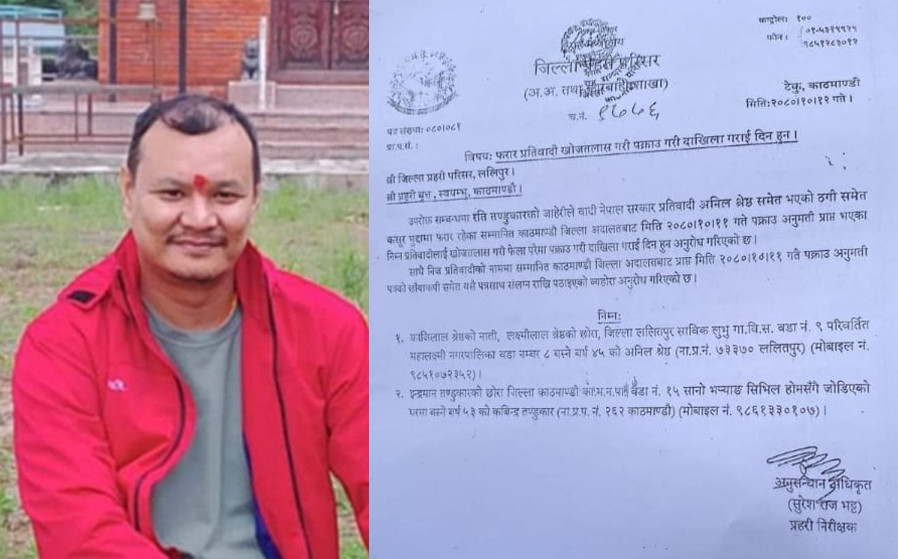 कन्ट्रोलः १००
फोनः
जिल्ला प्रहरी परिसर
(अ.अ. तथा शाखा)
टेकु, काठमाण्डौ
मितिः२०८०।१०।१२ गते ।
च.नं. १७७६
पत्र संख्याः ०८०।०८१
प्रा.प.सं. :
विषयः फरार प्रतिवादी खोजतलास गरी पक्राउ गरी दाखिला गराई दिनु हुन ।
श्री जिल्ला प्रहरी परिसर, ललितपुर ।
श्री प्रहरी बृत्त, स्वयम्भु, काठमाण्डौ ।
उपरोक्त सम्बन्धमा रति तण्डुकारको जाहेरीले वादी नेपाल सरकार प्रतिवादी अनिल श्रेष्ठ समेत भएको ठगी समेत
कसूर मुद्दामा फरार रहेका सम्मानित काठमाण्डौ जिल्ला अदालतबाट मिति २०८०।१०।११ गते पक्राउ अनुमती प्राप्त भएका
निम्न प्रतिवादीलाई खोजतलास गरी फेला परेमा पक्राउ गरी दाखिला गराई दिनु हुन अनुरोध गरिएको छ ।
साथै निज प्रतिवादीको नाममा सम्मानित काठमाण्डौ जिल्ला अदालतबाट प्राप्त मिति २०८०।१०।११ गते पक्राउ अनुमती
पत्रको छाँयाकपी समेत यसै पत्रसाथ संलग्न राखि पठाइएको ब्यहोरा अनुरोध गरिएको छ ।
निम्नः
१. काजिलाल श्रेष्ठको नाती, लक्ष्मीलाल श्रेष्ठको छोरा, जिल्ला ललितपुर साविक लुभु गा.वि.स. वडा नं. ९ परिवर्तित
महालक्ष्मी नगरपालिका वडा नम्बर ८ बस्ने बर्ष ४५ को अनिल श्रेष्ठ (ना.प्र.नं. ७३३७० ललितपुर) (मोबाइल नं.
९८५१०७२३५२) ।
२. इन्द्रमान तण्डुकारको छोरा जिल्ला काठमाण्डौ का.म.न.पा. वडा नं. १५ सानो भर्‍याङ सिभिल होमसँगै जोडिएको
घरमा बस्ने बर्ष ५३ को कबिन्द्र तण्डुकार (ना.प्र.प. नं. २६२ काठमाण्डौ) (मोबाइल नं. ९८६१३३०१०७) ।
अनुसन्धान अधिकृत
(सुरेश राज भट्ट)
प्रहरी निरीक्षक